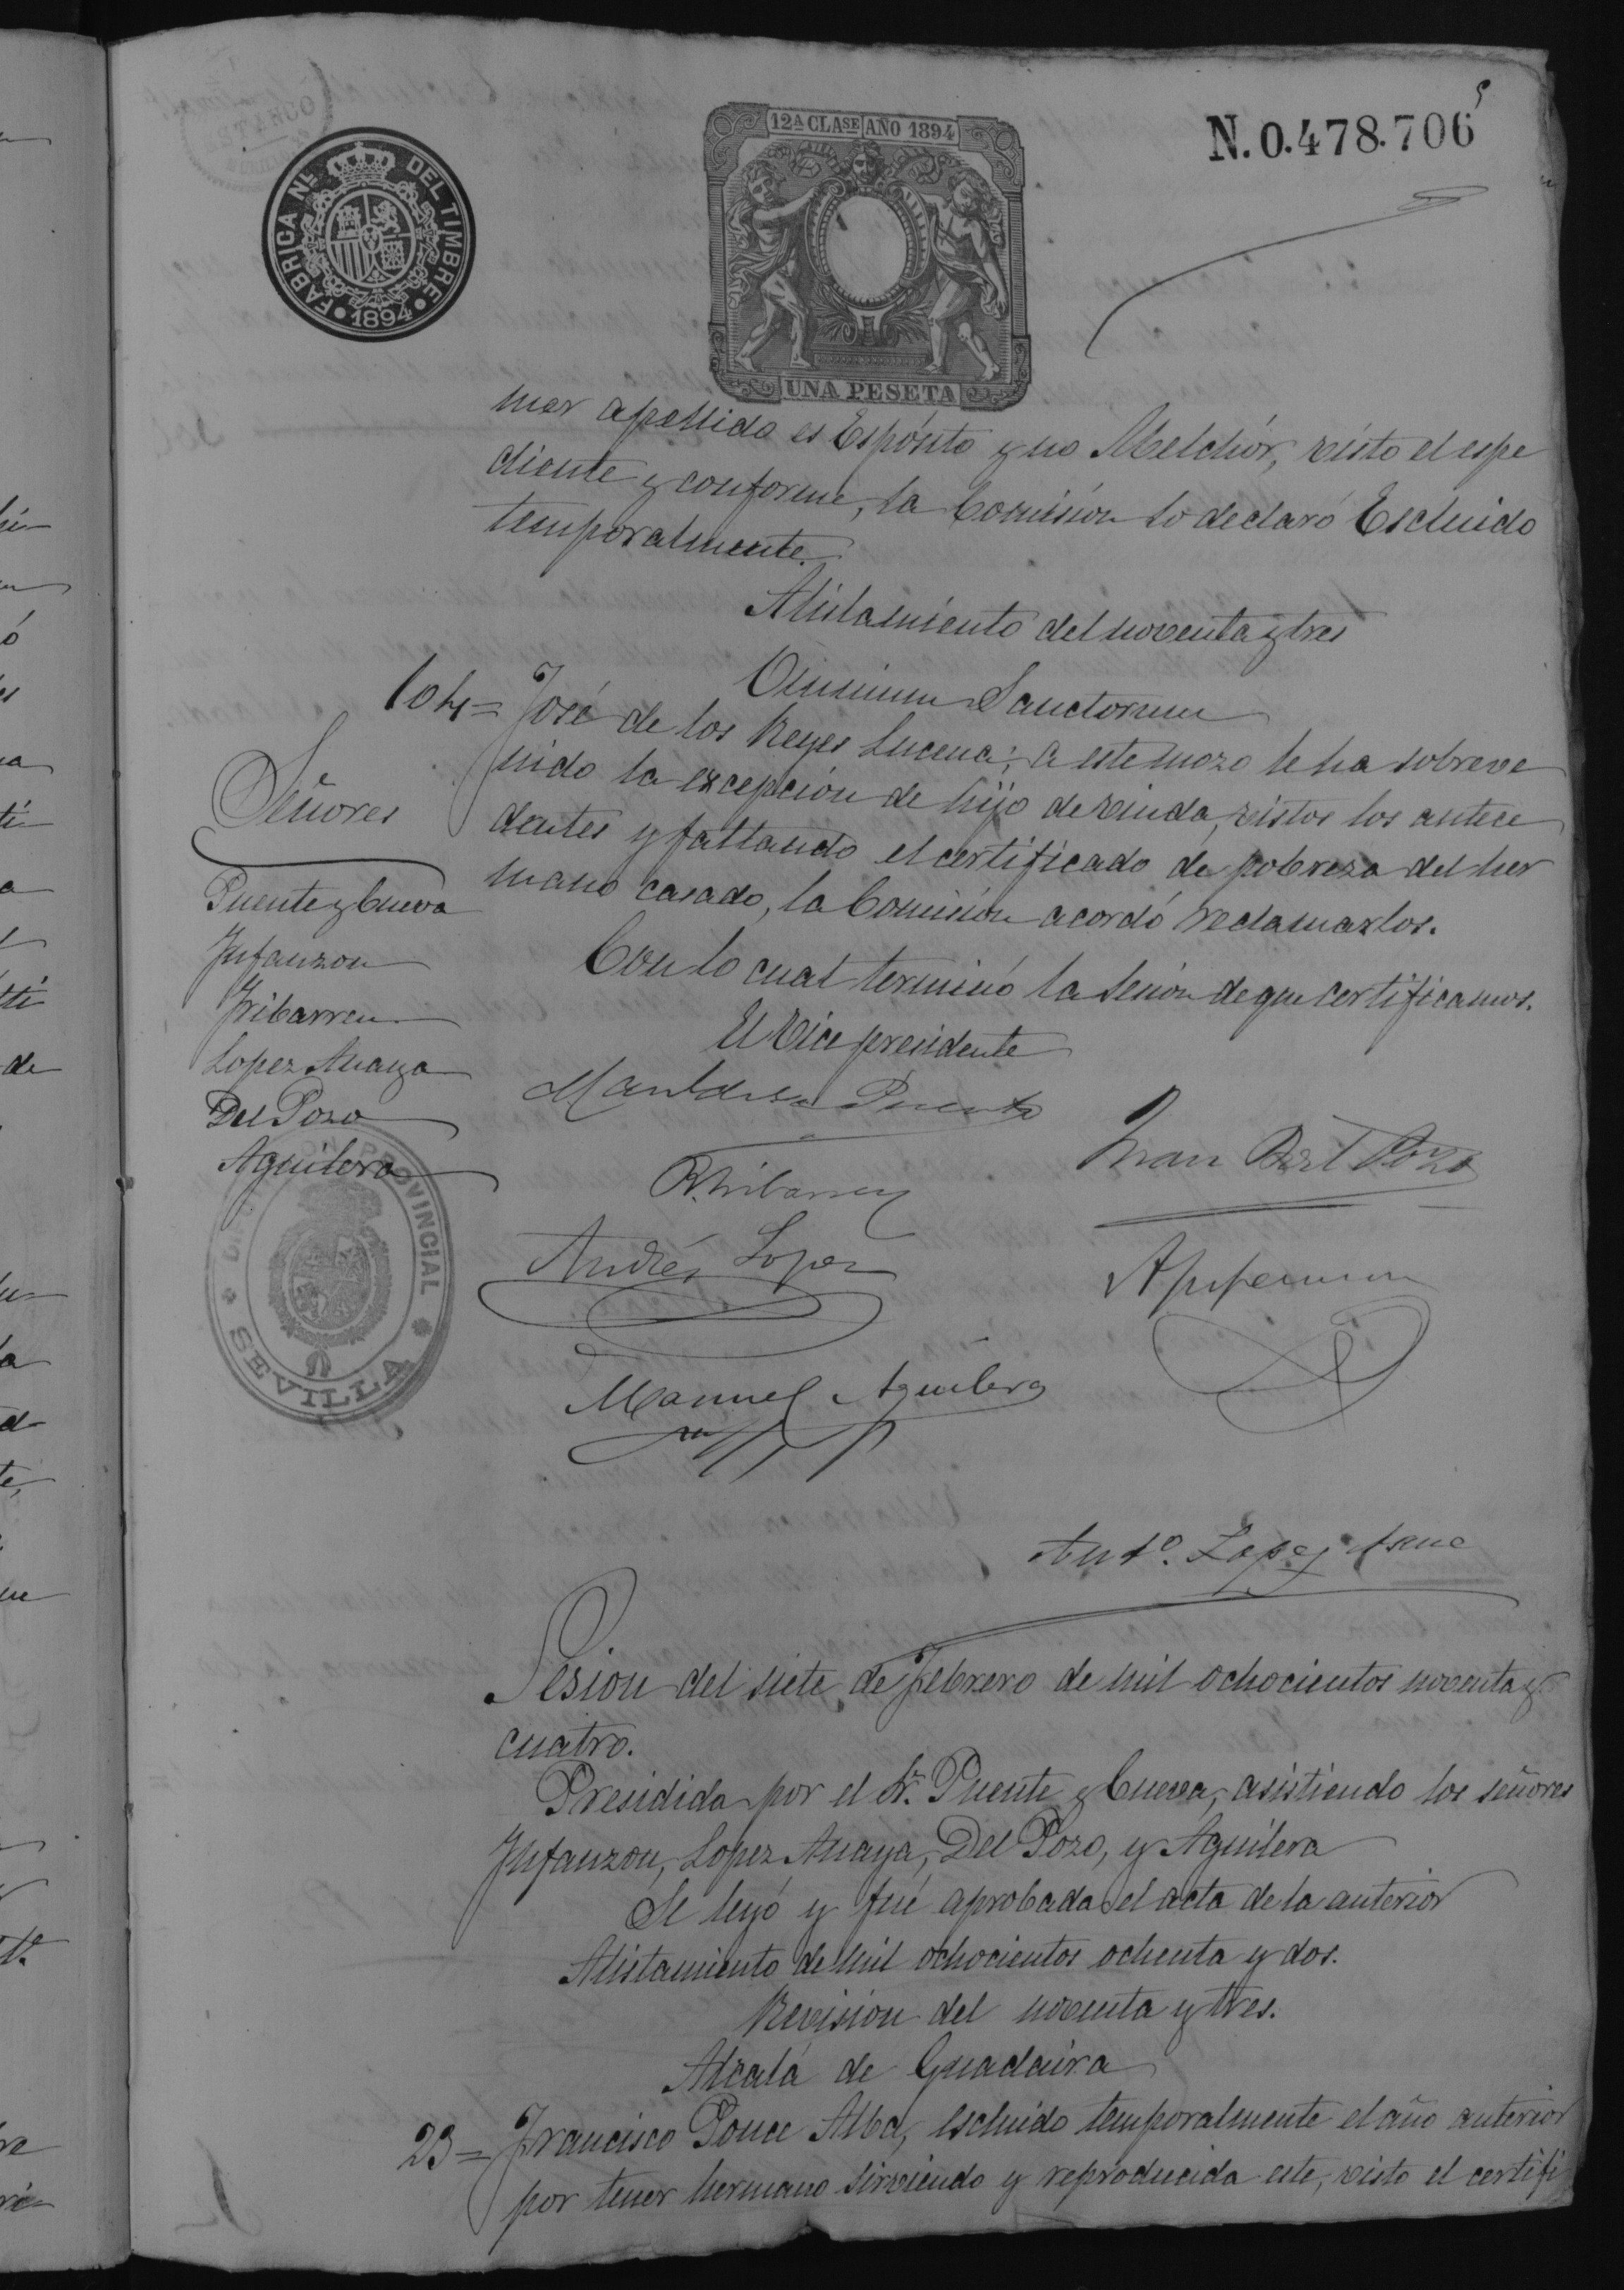 5
N.0.478.706
12ª CLASE AÑO 1894
UNA PESETA
FABRICA Nᴸ DEL TIMBRE
1894
mer apellido es Espósito y no Melchór, visto el espe
diente y conforme, la Comisión lo declaró Escluido
temporalmente.
Alistamiento del noventa y tres
Omnium Sanctorum
104= José de los Reyes Lucena; a este mozo le ha sobreve
nido la excepción de hijo de viuda, vistos los antece
dentes y faltando el certificado de pobreza del her
mano casado, la Comisión acordó reclamarlos.
Con lo cual terminó la sesión de que certificamos.
El Vicepresidente
Señores
Puente y Cueva
Infanzon
Iribarren
Lopez Anaya
Del Pozo
Aguilera
PROVINCIAL
SEVILLA
Puente
R. Iribarren
Juan Del Pozo
Andrés Lopez
Manuel Aguilera
Antº. Lopez
Sesion del siete de Febrero de mil ochocientos noventa y
cuatro.
Presidida por el Sr. Puente y Cueva, asistiendo los señores
Infanzon, Lopez Anaya, Del Pozo, y Aguilera
Se leyó y fué aprobada el acta de la anterior
Alistamiento de mil ochocientos ochenta y dos.
Revision del noventa y tres.
Alcalá de Guadaira
23= Francisco Ponce Alba, escluido temporalmente el año anterior
por tener hermano sirviendo y reproducida este, visto el certifi